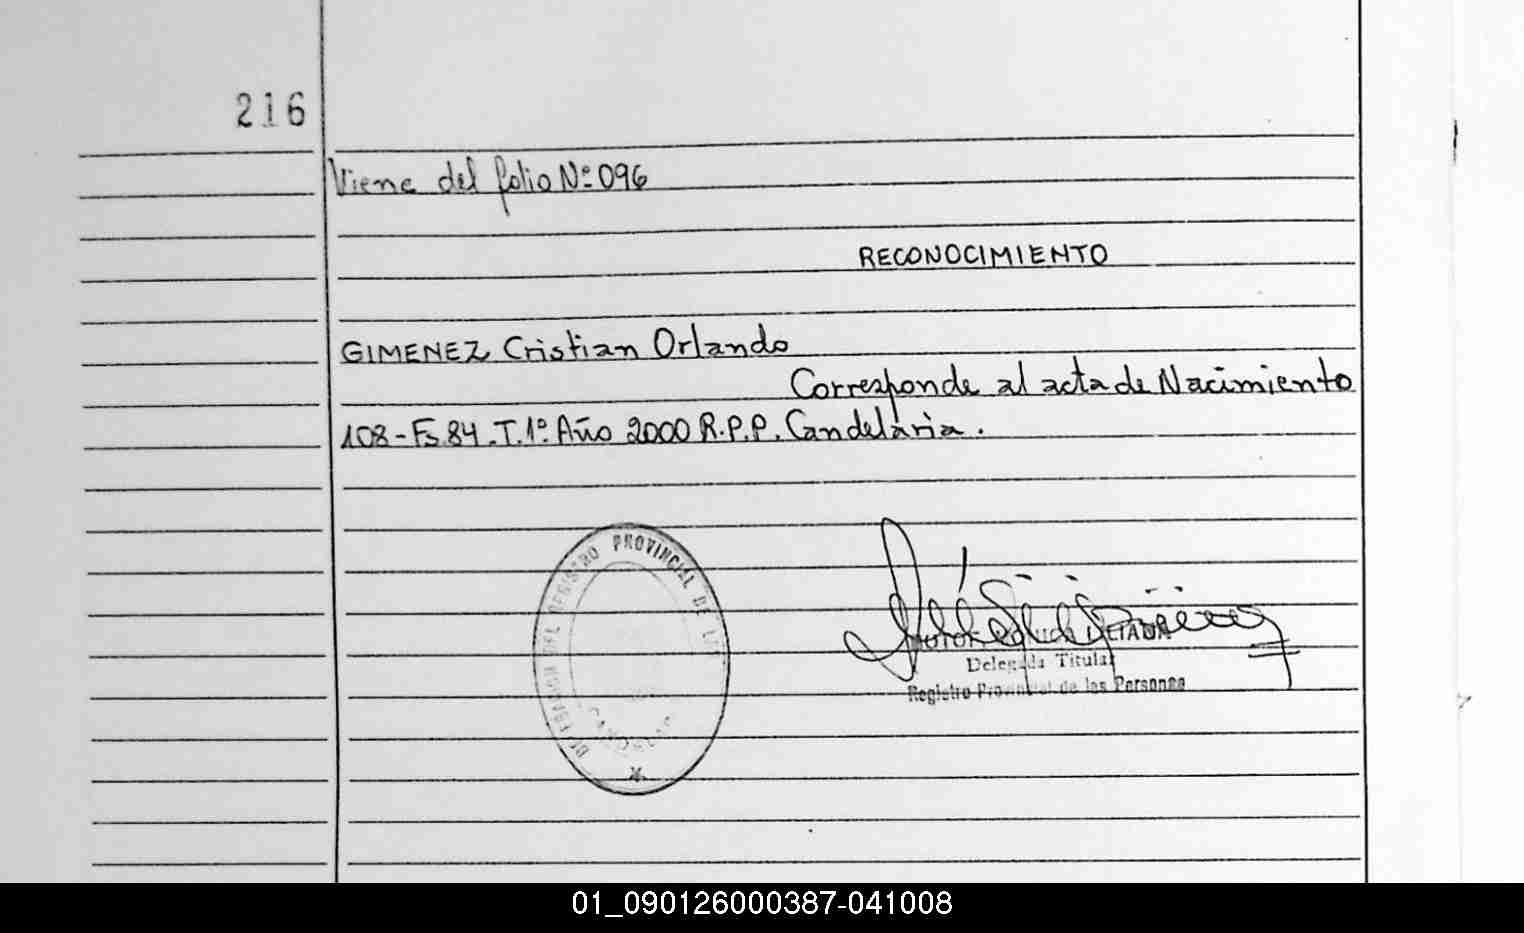 216
Viene del folio Nº 096
RECONOCIMIENTO
GIMENEZ Cristian Orlando
Corresponde al acta de Nacimiento
108-Fs.84.T.1º Año 2000 R.P.P. Candelaria.
REGISTRO PROVINCIAL DE LAS
Delegada Titular
Registro Provincial de las Personas
01_090126000387-041008